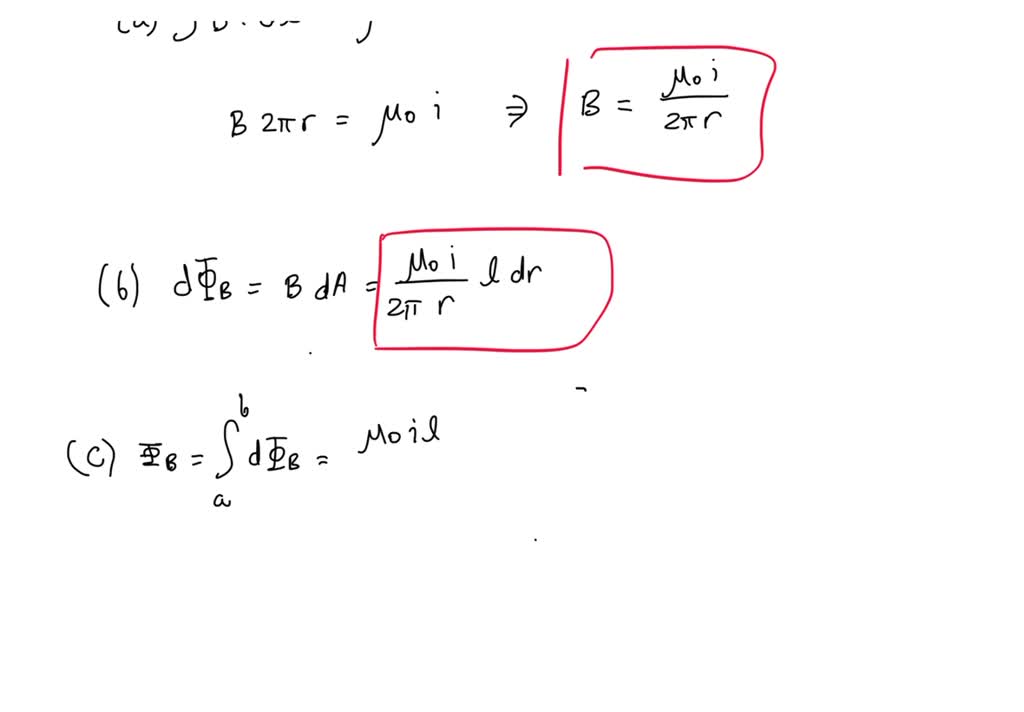 (a)
B 2πr = μ₀ i ⇒ B = μ₀ i / 2π r
(b) dΦ_B = B dA = μ₀ i / 2π r l dr
(c) Φ_B = ∫_a^b dΦ_B = μ₀ i l